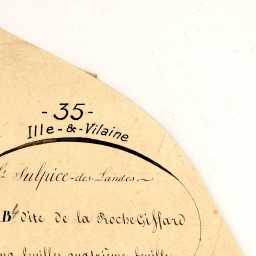 - 35 -
Ille - & - Vilaine
St Sulpice - des - Landes
Bte dite de la Roche Giffard
feuilles quatrième feuille